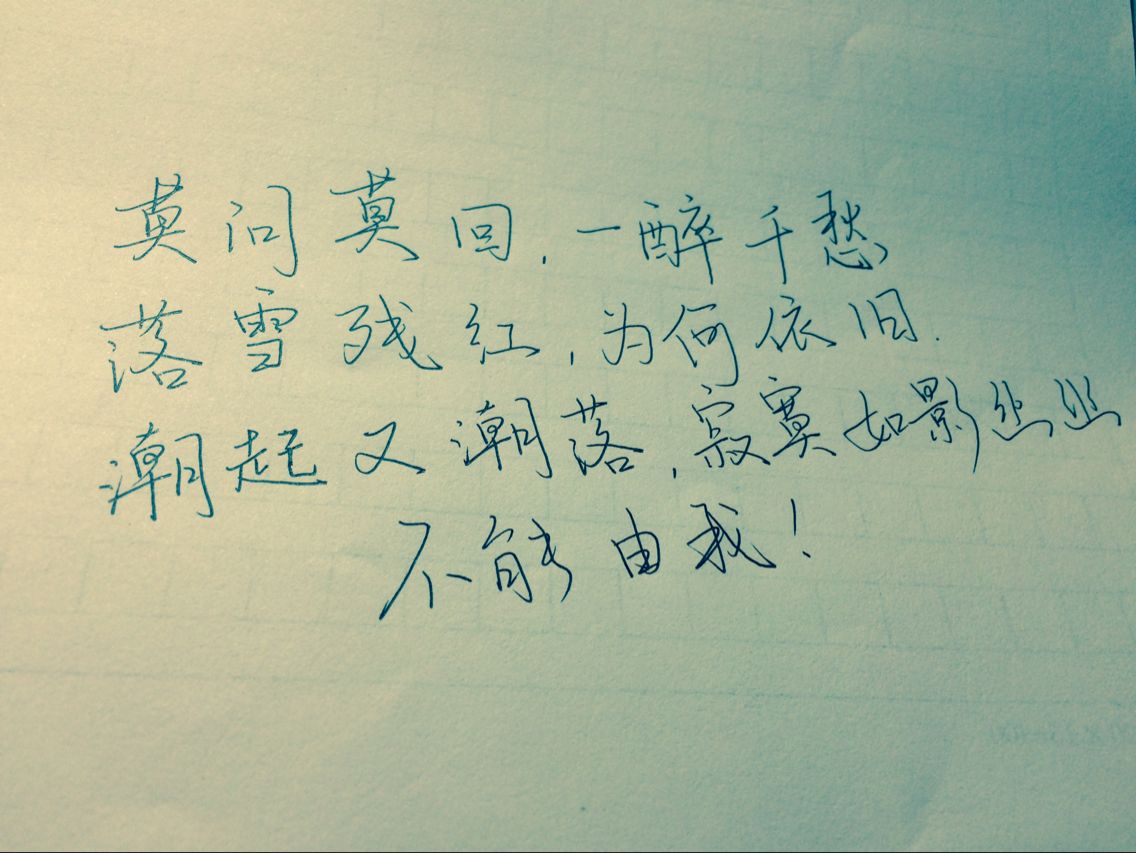 莫问莫回,一醉千愁
落雪残红,为何依旧.
潮起又潮落,寂寞如影丝丝
不能由我!